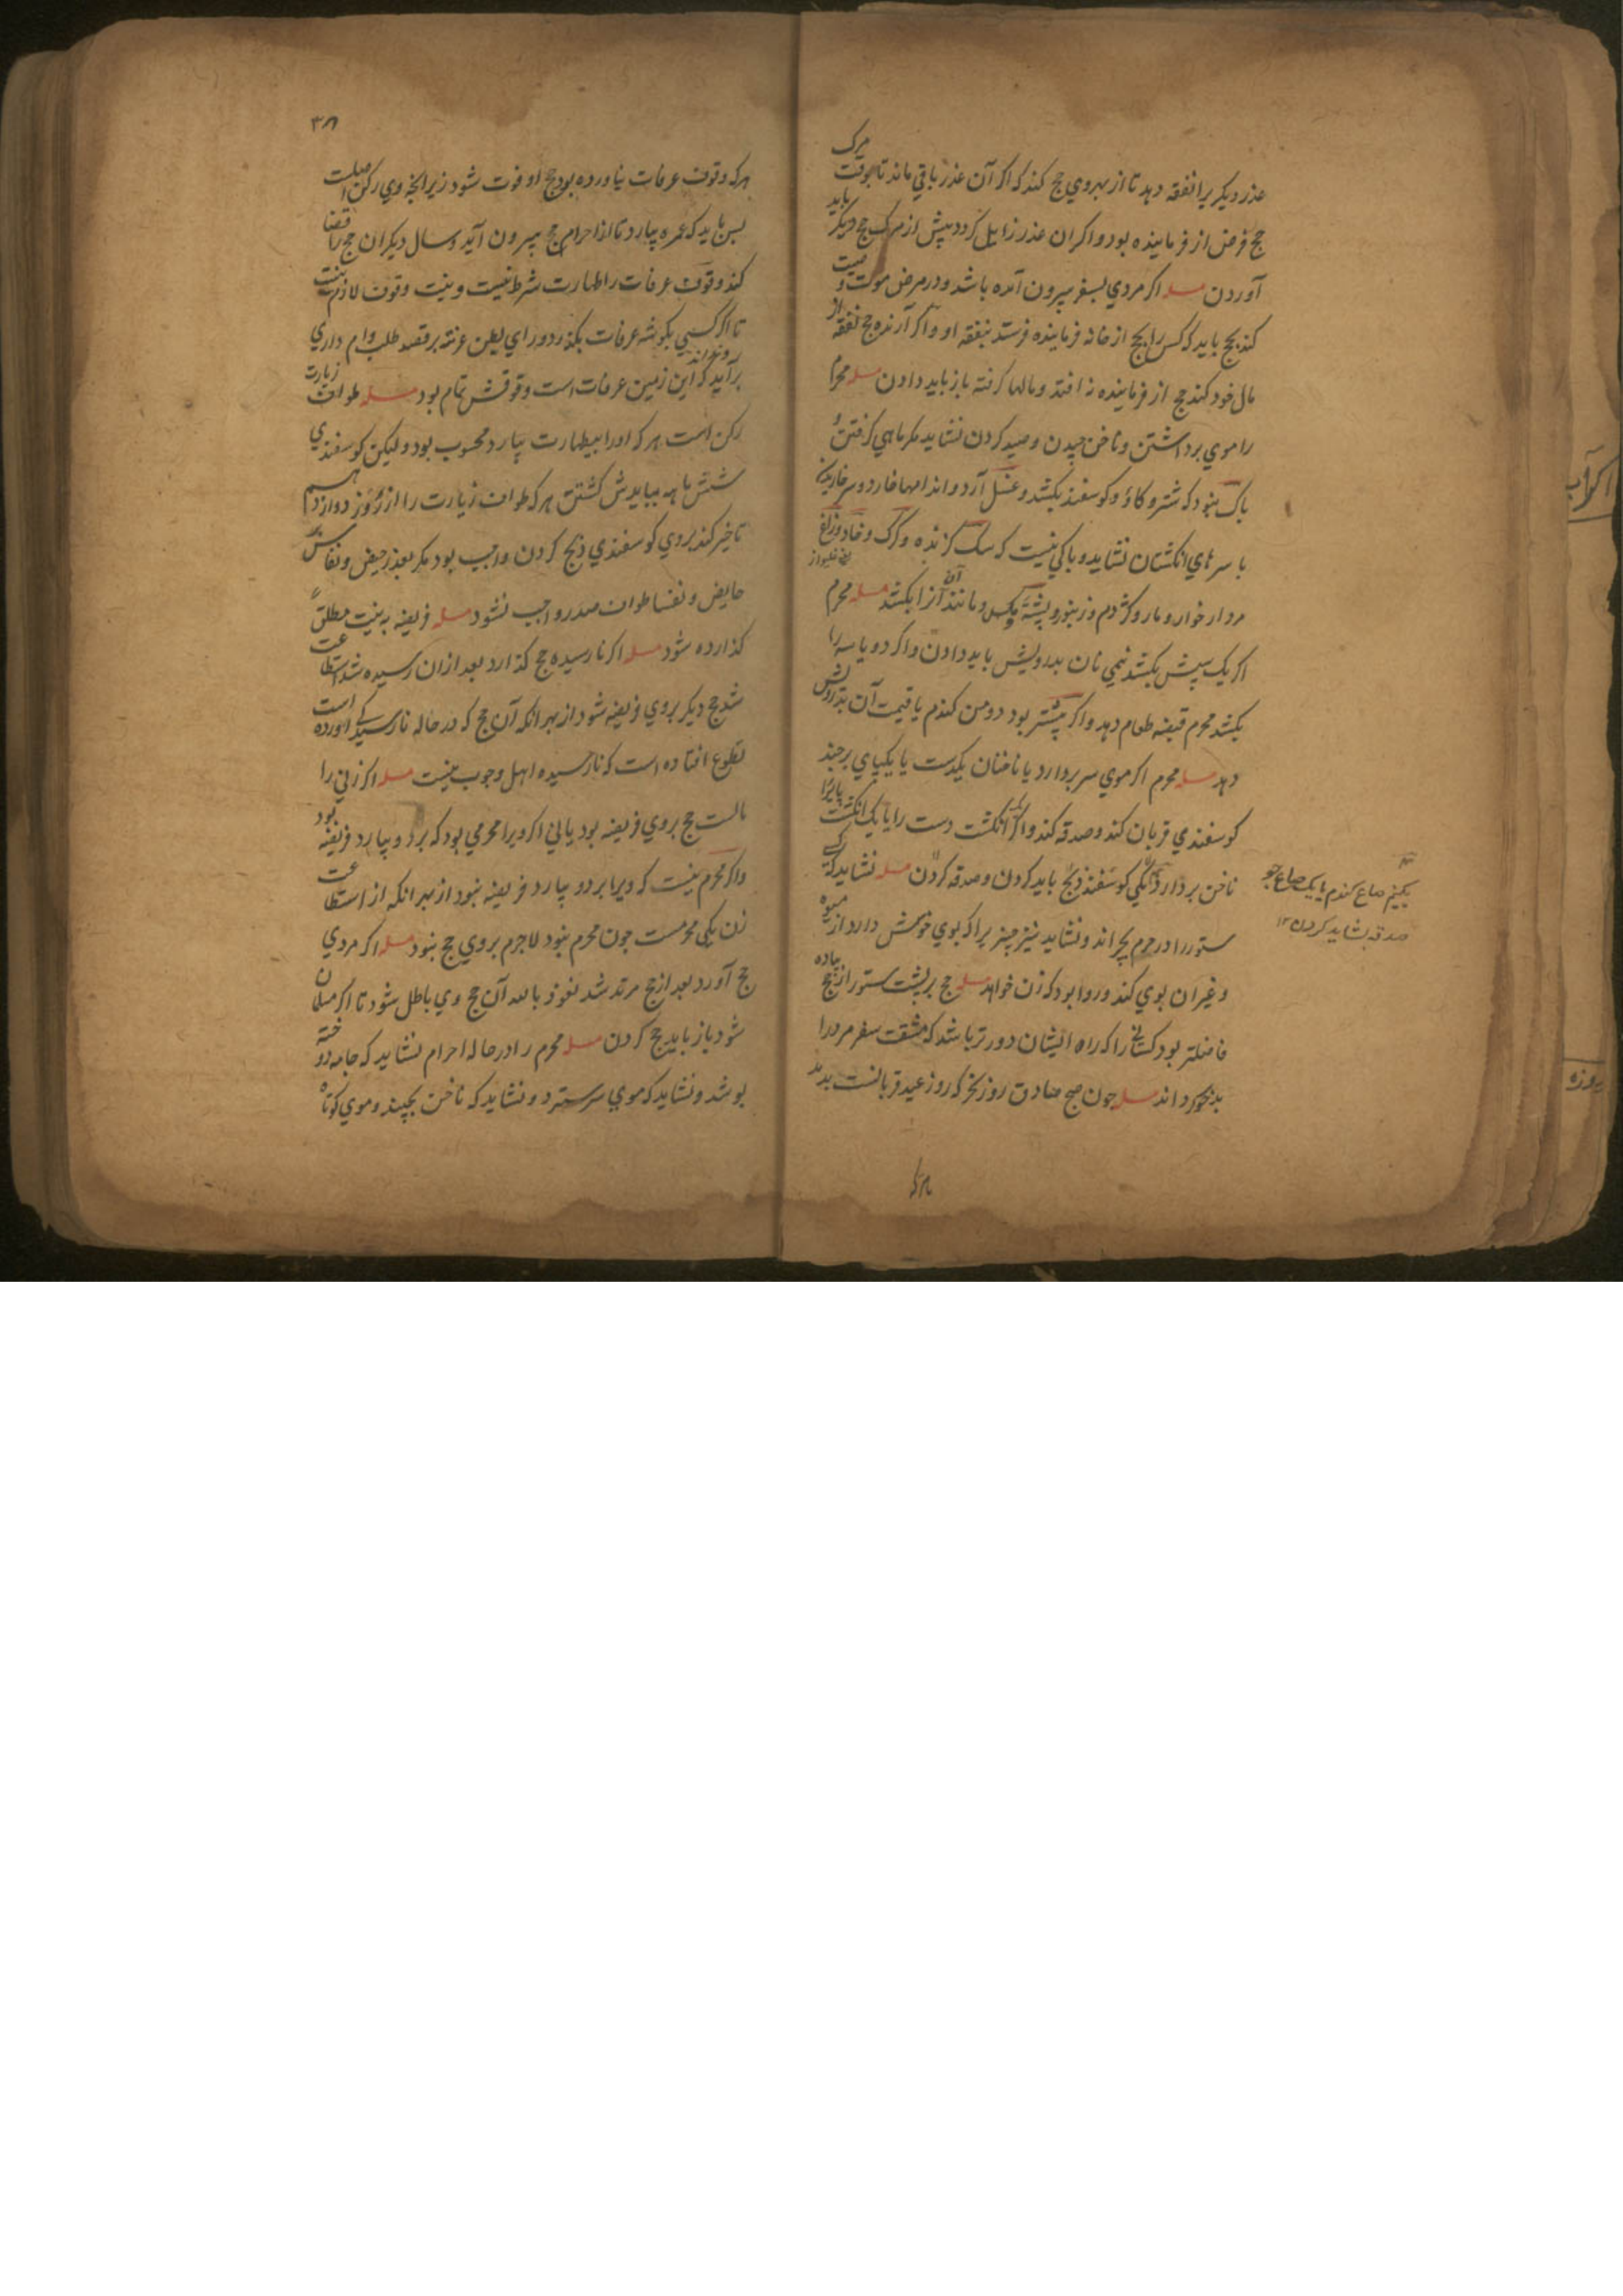 عذر دیکریرا نفقه دهد تا از بهر وي حج کند که اکر آن عذر باقي ماند تا بوقت مرک
حج فرض از فرماینده بود و اکر ان عذر زایل کردد پیش از مرک حج دیکر باید
آوردن مسله اکر مردي بسفر بیرون آمده باشد و در مرض موت وصیت
کند بحج باید که کس را بحج از خانه فرماینده فرستد بنفقه او و اکر آرنده حج نفقه از
مال خود کند حج از فرماینده نه افتد و مالها کرفته باز باید دادن مسله محرم
را موي برداشتن و ناخن چیدن و صید کردن نشاید مکر ماهي کرفتن و
باک نبود که شتر و کاؤ و کوسفند بکشد و غسل آرد و اندامها خارد و سر خاریدن
با سرهاي انکشتان نشاید و باکي نیست که سک کزنده و کرک و خاد و زاغ
یعني غلیواز
مردار خوار و مار و کژدم و زنبور و پشه و مکس و مانند آن آنرا بکشد مسله محرم
اکر یک سپش بکشد نیمي نان بدرویش باید دادن و اکر دو یا سه را
بکشد محرم قبضه طعام دهد و اکر بیشتر بود دو من کندم یا قیمت آن بدرویش
دهد مسله محرم اکر موي سر بردارد یا ناخنان یکدست یا یکپاي برچیند
کوسفندي قربان کند و صدقه کند و اکر انکشت دست را یا یک انکشت پایرا
ناخن بردارد کوسفند ذبح باید کردن و صدقه کردن مسله نشاید که کسے
ستور را در حرم بچراند و نشاید نیز چیزیرا که بوي خوش دارد از میوه
و غیر ان بوي کند و روا بود که زن خواهد مسله حج بر پشت ستور از حج پیاده
فاضلتر بود کساني را که راه ایشان دورتر باشد که مشقت سفر مرد را
بدخو کرداند مسله چون صبح صادق روز نحر که روز عید قربانست بدمد
یک نیم صاع کندم یا یک صاع جو
صدقه بشاید کردن ۱۲
۳۸
هر که وقوف عرفات نیاورده بود حج او فوت شود زیرا نچه وي رکن اصلیت
پس باید که عمره بیارد تا از احرام حج بیرون آید و سال دیکر ان حج را قضا
کند وقوف عرفات را طهارت شرط نیست و نیت وقوف لازم نیست
تا اکر کسي بکوشه عرفات بکذرد وراي بطن عرنه بر قصد طلب وام داري
برآید که این زمین عرفات است وقوفش تمام بود مسله طواف زیارت
رکن است هر که اورا بیطهارت بیارد محسوب بود ولیکن کوسفندي
شش ماهه ببایدش کشتن هر که طواف زیارت را از روز دوازدهم
تاخیر کند بروي کوسفندي ذبح کردن واجب بود مکر بعذر حیض و نفاس بر
حایض و نفسا طواف صدر واجب نشود مسله فریضه به نیت مطلق
کذارده شود مسله اکر نارسیده حج کذارد بعد از ان رسیده شد استطاعت
شد حج دیکر بروي فریضه شود از بهر انکه آن حج که در حاله نارسیدکے آورده است
تطوع افتاده است که نارسیده اهل وجوب نیست مسله اکر زني را
مالست حج بروي فریضه بود یا ني اکر ویرا محرمي بود که برد و بیارد فریضه بود
و اکر محرم نیست که ویرا برد و بیارد فریضه نبود از بهر انکه از استطاعت
زن یکي محرمست چون محرم نبود لاجرم بروي حج نبود مسله اکر مردي
حج آورد بعد از حج مرتد شد نعوذ بالله آن حج وي باطل شود تا اکر مسلمان
شود باز باید حج کردن مسله محرم را در حاله احرام نشاید که جامه دوخته
پوشد و نشاید که موي سر سترد و نشاید که ناخن بچیند و موي کوتاه